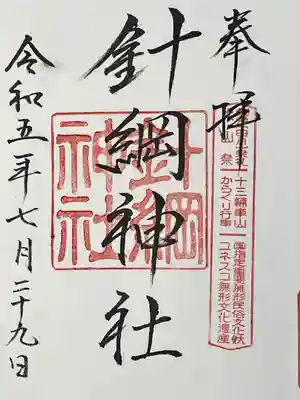 奉拝
十三輛車山
からくり行事
国指定重要無形民俗文化財
ユネスコ無形文化遺産
針綱神社
針綱神社
令和五年七月二十九日